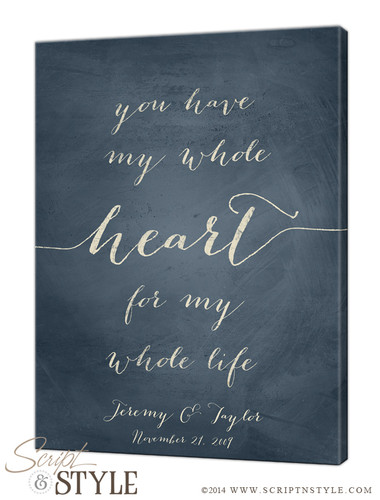 you have
my whole
heart
for my
whole life
Jeremy & Taylor
November 21, 2009
Script
& STYLE
©2014 WWW.SCRIPTNSTYLE.COM